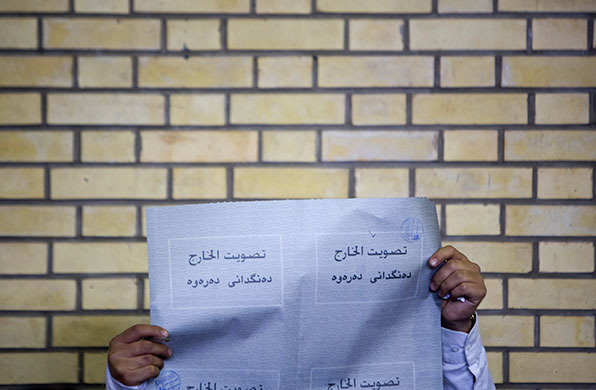 تصويت الخارج
دەنگدانی دەرەوە
تصويت الخارج
دەنگدانی دەرەوە
تصويت الخارج
تصويت الخارج